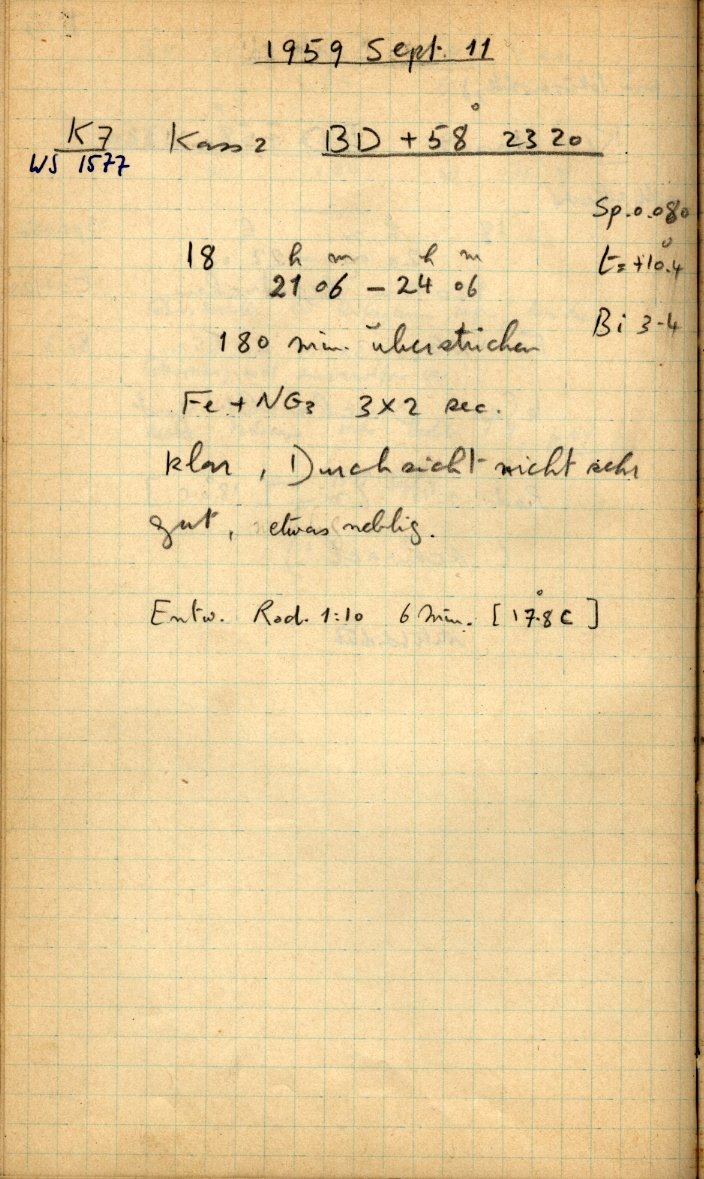 1959 Sept. 11
K7 Kass 2 BD +58° 2320
WS 1577
Sp. 0.080
18 h m h m
t = +10.°4
21 06 – 24 06
Bi 3-4
180 min. überstrichen
Fe + NG3 3x2 sec.
klar, Durchsicht nicht sehr
gut, etwas neblig.
Entw. Rod. 1:10 6 Min. [17.°8 C]